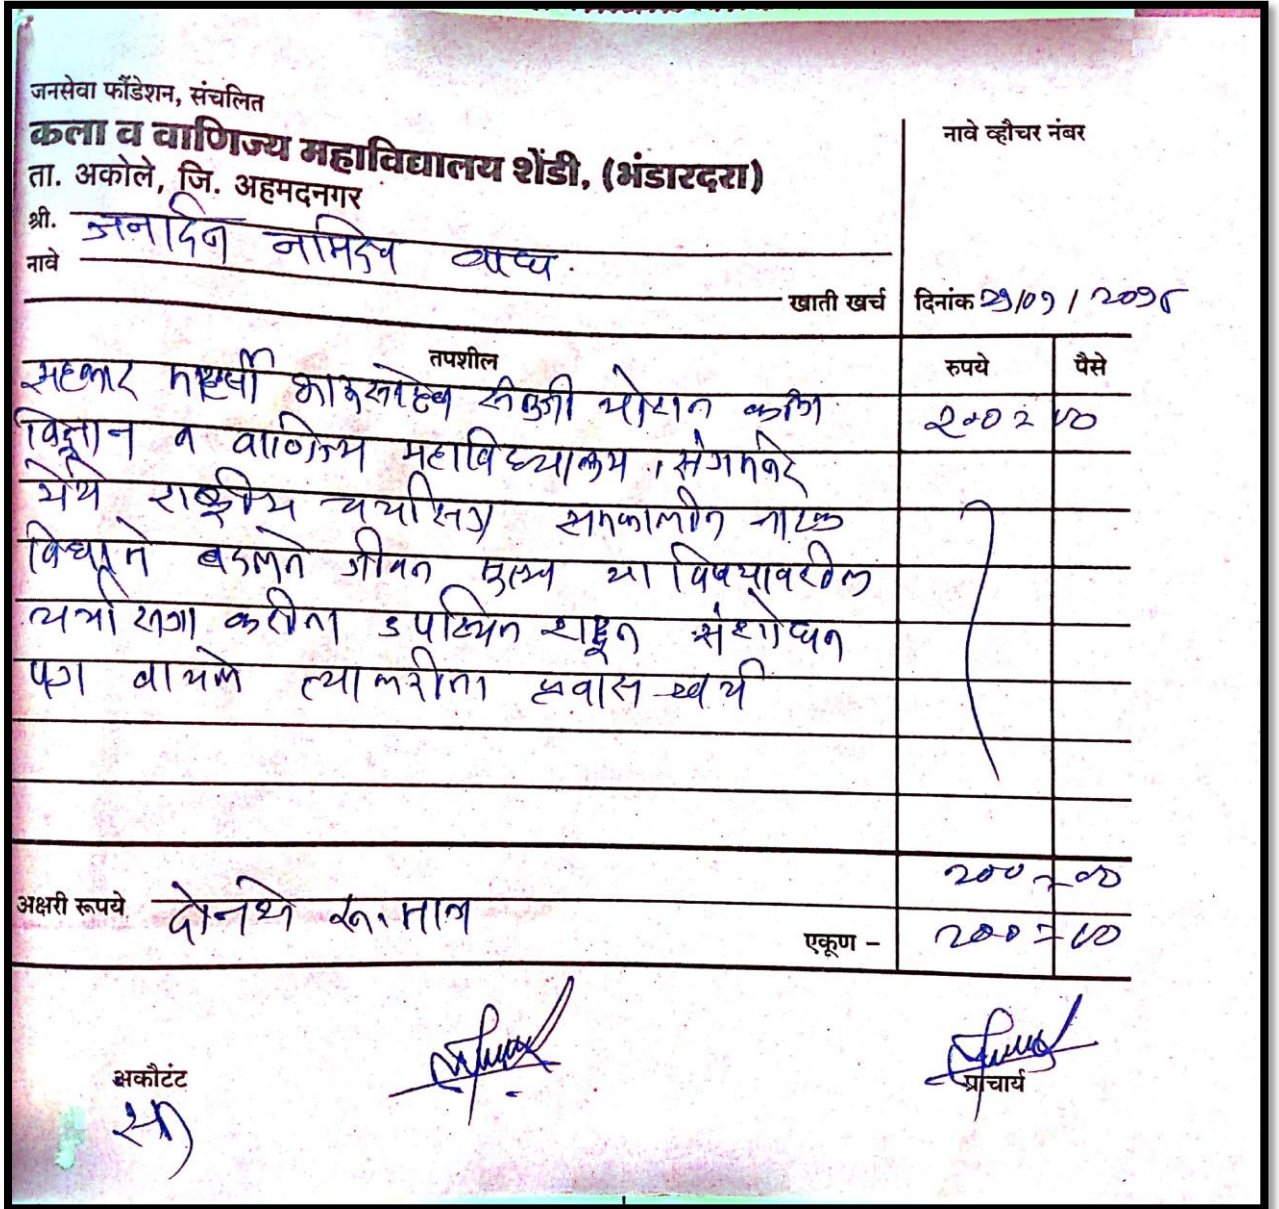 जनसेवा फौंडेशन, संचलित
कला व वाणिज्य महाविद्यालय शेंडी, (भंडारदरा)
ता. अकोले, जि. अहमदनगर
नावे व्हौचर नंबर
श्री. जनार्दन नामदेव वाघ.
नावे
खाती खर्च
दिनांक /०१/२०१८
तपशील
रुपये पैसे
सहकार महर्षी भाऊसाहेब थोरात कला
२००=००
विज्ञान व वाणिज्य महाविद्यालय, संगमनेर
येथे राष्ट्रीय चर्चासत्र समकालीन नाटक
बदलते जीवन मूल्य या विषयावरील
चर्चासत्रा करीता उपस्थित राहून संशोधन
पत्र वाचले त्याकरीता प्रवास खर्च
२००=००
अक्षरी रूपये दोनशे रू. मात्र
एकूण – २००=००
अकौटंट
प्राचार्य